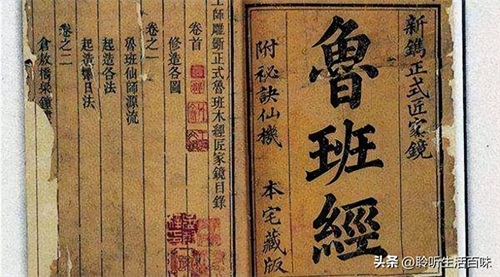 新鐫正式匠家鏡
魯班經
附祕訣仙機
本宅藏版
工師雕斲正式魯班木經匠家鏡目錄
卷首
修造各圖
卷之一
魯班仙師源流
起造各法
起造日法
卷之二
倉敖橋梁
头条 @聆听生活百味